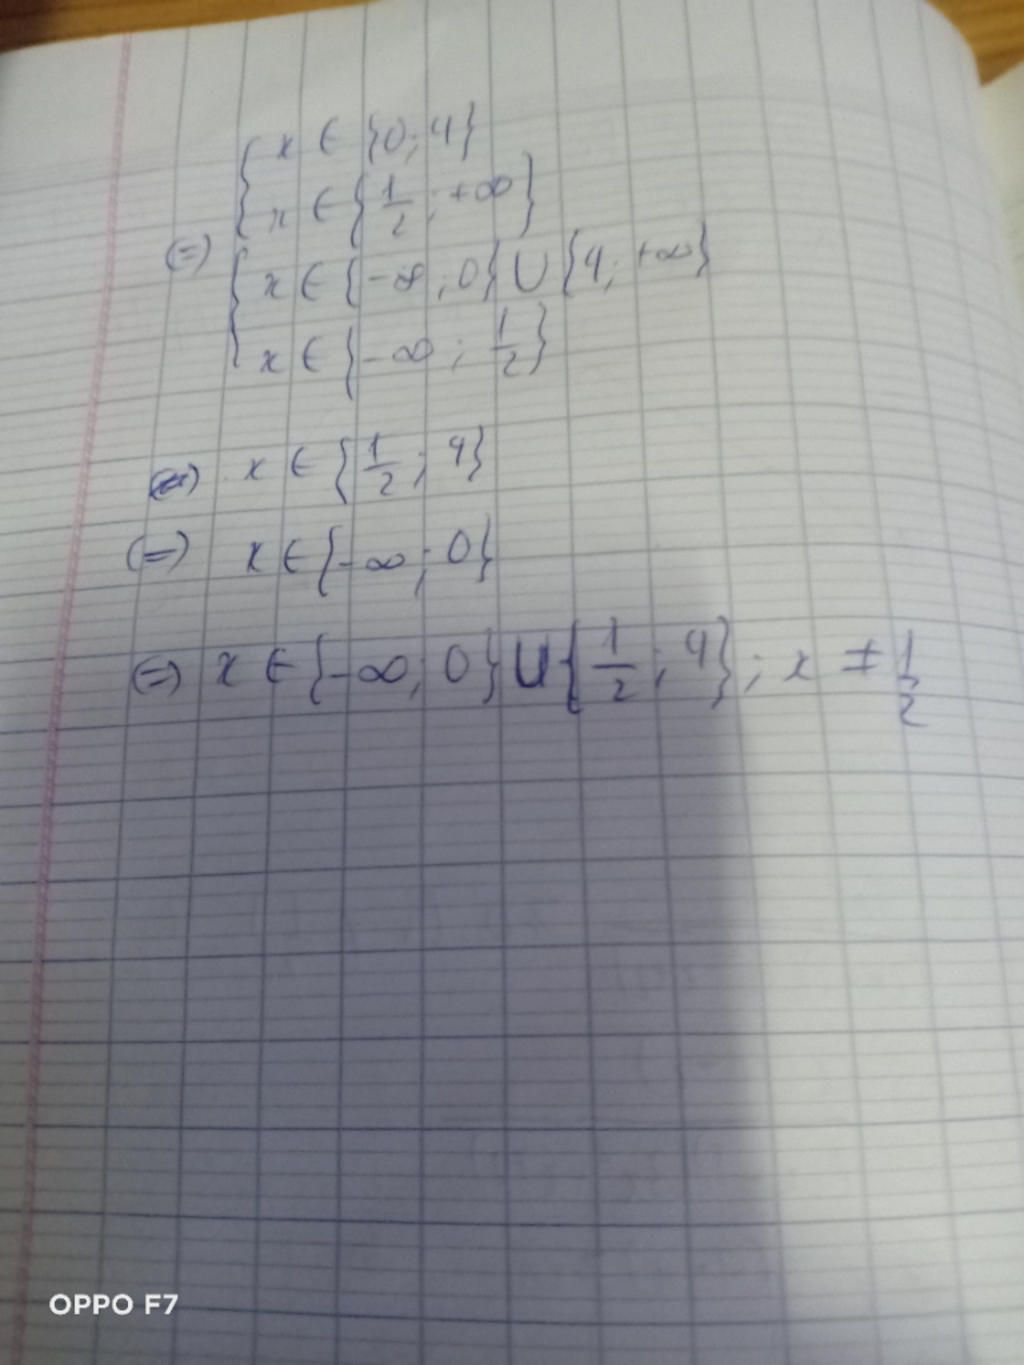 x ∈ {0; 4}
x ∈ {1/2; +∞}
(=)
x ∈ {-∞; 0} ∪ {4; +∞}
x ∈ {-∞; 1/2}
x ∈ {1/2; 4}
(=) x ∈ {-∞; 0}
(=) x ∈ {-∞; 0} ∪ {1/2; 4}; x ≠ 1/2
OPPO F7